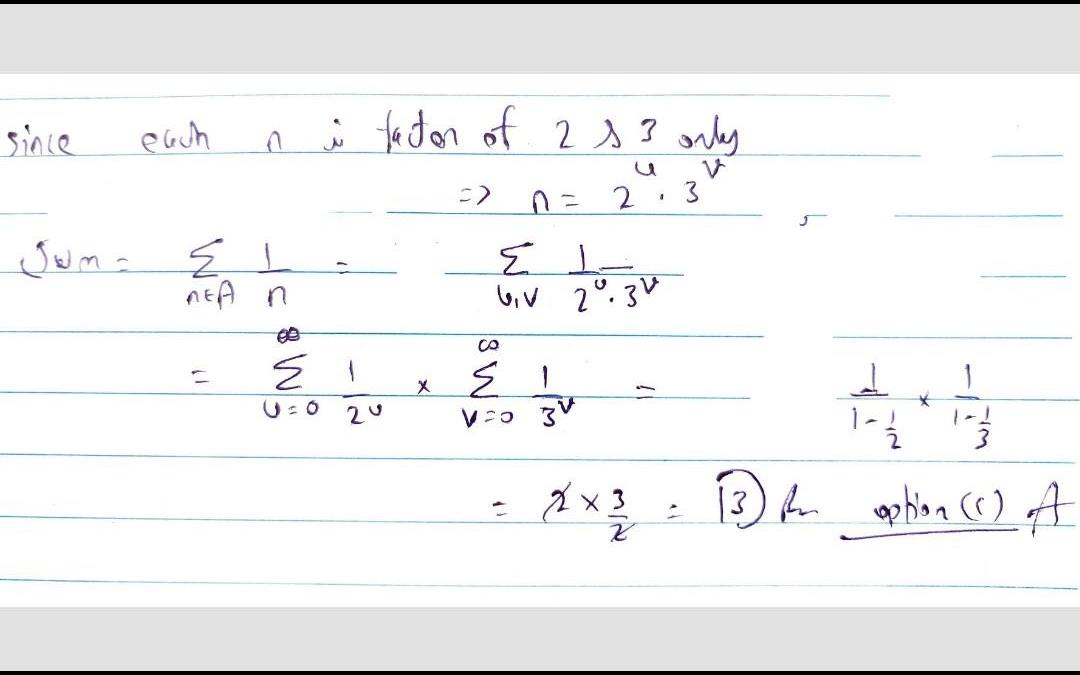 since each n is factor of 2 & 3 only
=> n = 2^u . 3^v ,
Sum = Σ_{n∈A} 1/n = Σ_{u,v} 1/(2^u . 3^v)
= Σ_{u=0}^{∞} 1/2^u × Σ_{v=0}^{∞} 1/3^v = 1/(1-1/2) × 1/(1-1/3)
= 2 × 3/2 = 3 option (C) A